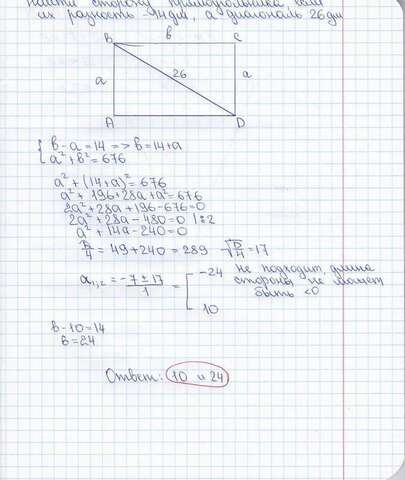 найти стороны прямоугольника, если
их разность 14 дм, а диагональ 26 дм
B в C
a 26 a
A D
в - a = 14 => в = 14 + a
a² + в² = 676
a² + (14+a)² = 676
a² + 196 + 28a + a² = 676
2a² + 28a + 196 - 676 = 0
2a² + 28a - 480 = 0 |:2
a² + 14a - 240 = 0
D/4 = 49 + 240 = 289 √D/4 = 17
a₁,₂ = (-7 ± 17)/1 = [ -24 не подходит, длина
стороны не может
быть < 0
10
в - 10 = 14
в = 24
Ответ: 10 и 24